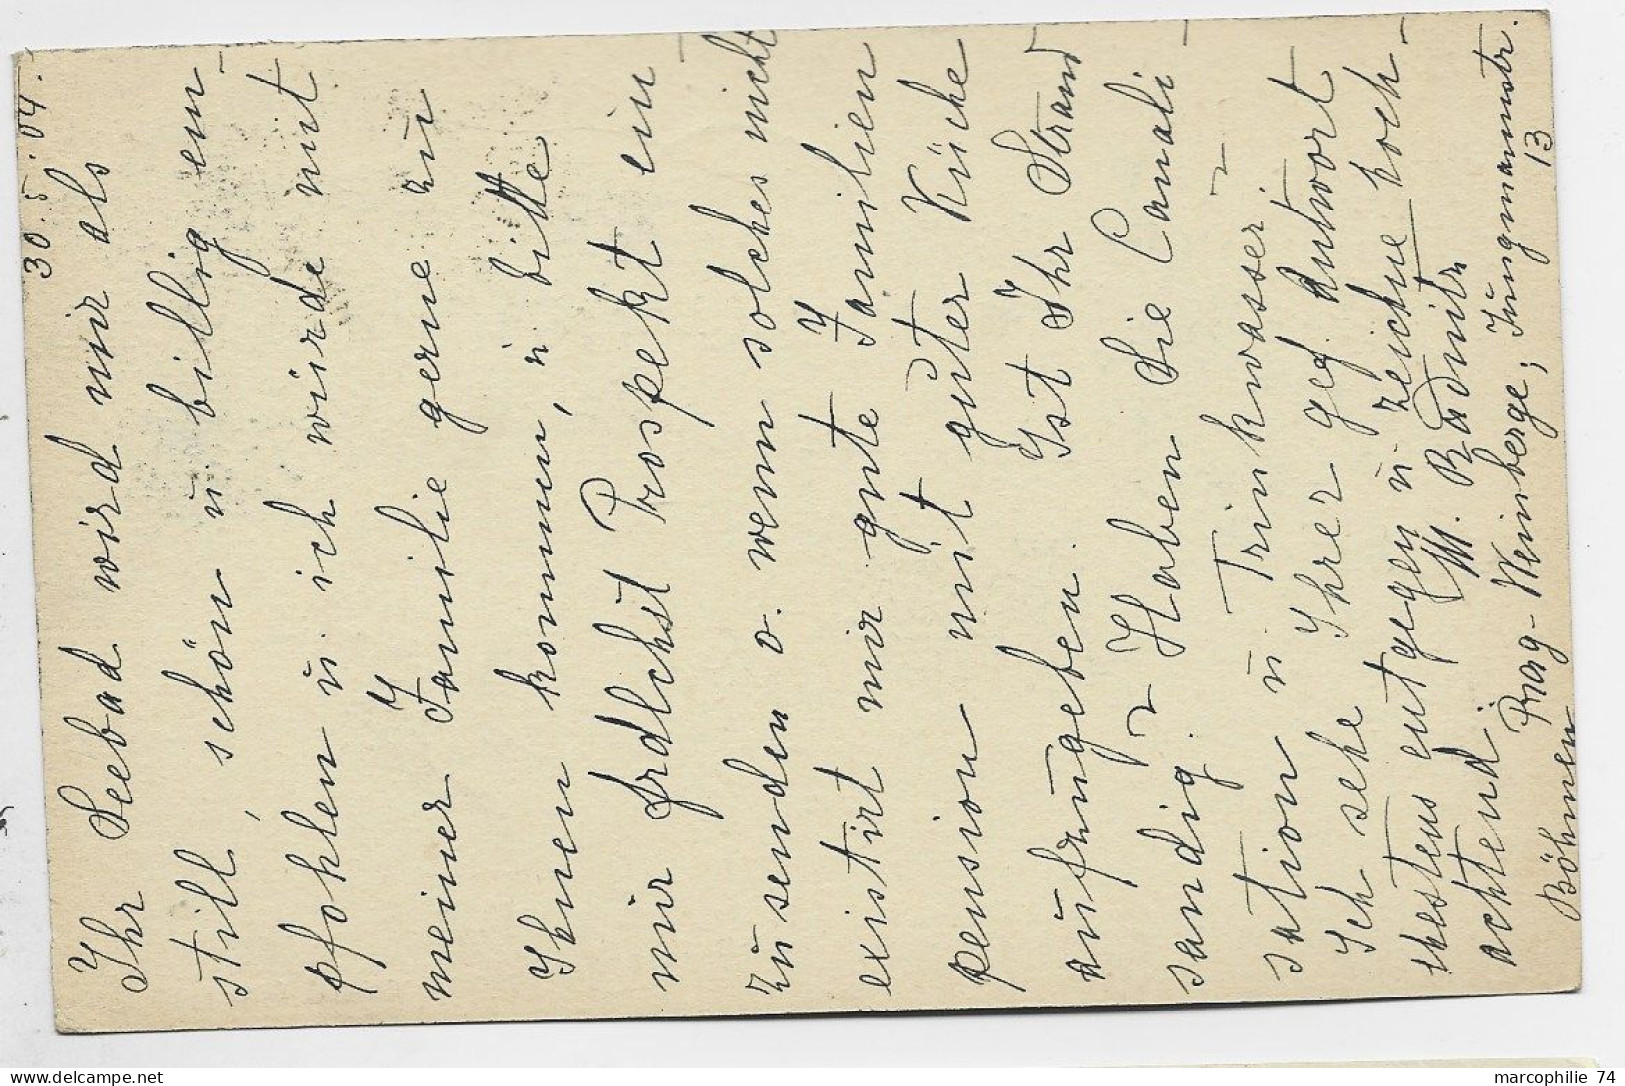 30.5.04.
Ihr Seebad wird mir als
still, schön ü. billig em-
pfohlen ü. ich würde mit
meiner Familie gerne zü
Ihnen kommen, ü. bitte
mir frdlchst Prospekt ein-
züsenden o. wenn solches nicht
existirt mir gute Familien-
pension mit güter Küche
aüfzügeben. Ist Ihr Strand
sandig? Haben Sie Canali-
sation ü. Trinkwasser?
Ich sehe Ihrer gef. Antwort
bestens entgegen ü. zeichne hoch-
achtend: M. Büdnitz
Prag-Weinberge, Jüngmannstr.
13
Böhmen
marcophilie 74